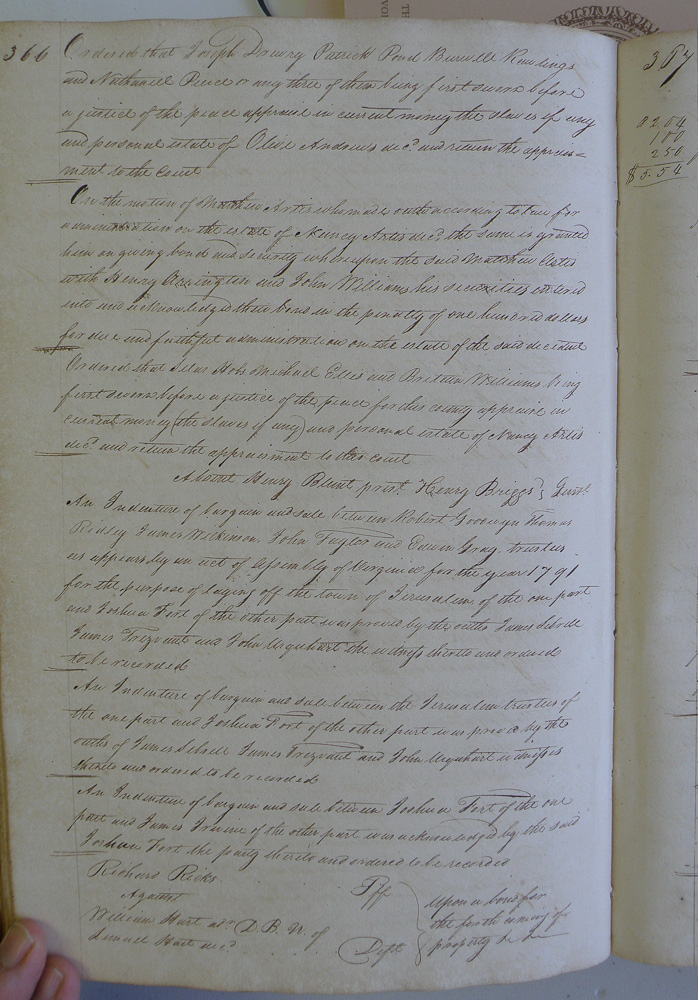 366
Ordered that Joseph Drewry Patrick Pond Burwell Rawlings
and Nathaniel Peirce or any three of them being first sworn before
a justice of the peace appraise in current money the slaves if any
and personal estate of Olive Andrews decd. and return the apprais=
ment to the Court
On the motion of Matthew Artis who made oath according to law for
administration on the estate of Nancy Artis decd. the same is granted
him on giving bond and security whereupon the said Matthew Artis
with Henry Arrington and John Williams his securities entered
into and acknowledged their bond in the penalty of one hundred dollars
for due and faithful administration on the estate of the said decedent
Ordered that Silas Hobs Michael Ellis and Britain Williams being
first sworn before a justice of the peace for this county appraise in
current money (the slaves if any) and personal estate of Nancy Artis
decd. and return the appraisment to this court
Absent Henry Blunt prest. Henry Briggs Gent.
An Indenture of bargain and sale between Robert Goodwyn Thomas
Ridley James Wilkinson, John Taylor and Edwin Gray trustees
as appears by an act of Assembly of Virginia for the year 1791
for the purpose of laying off the town of Jerusalem of the one part
and Joshua Fort of the other part was proved by the oaths James Sebrell
James Trezvant and John Urquhart the witness thereto and ordered
to be recorded
An Indenture of bargain and sale between the Jerusalem trustees of
the one part and Joshua Fort of the other part was proved by the
oaths of James Sebrell James Trezvant and John Urquhart witnesses
thereto and ordered to be recorded
An Indenture of bargain and sale between Joshua Fort of the one
part and James of the other part was acknowledged by the said
Joshua Fort the party thereto and ordered to be recorded
Richard Ricks Plf
Against
William Hart adr. D. B. N. of
Samuel Hart decd. Deft
Upon a bond for
the forth coming of
property &c
367
204
100
250
$5.54